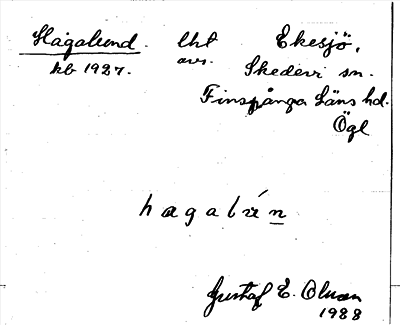 Hagalund. lht Ekesjö,
kb 1927. avs. Skedevi sn.
Finspånga Läns hd.
Ögl
hagalún
Gustaf E. Olsson
1988